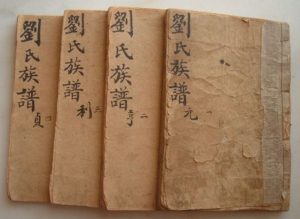 劉氏族譜 元 一
劉氏族譜 亨 二
劉氏族譜 利 三
劉氏族譜 貞 四